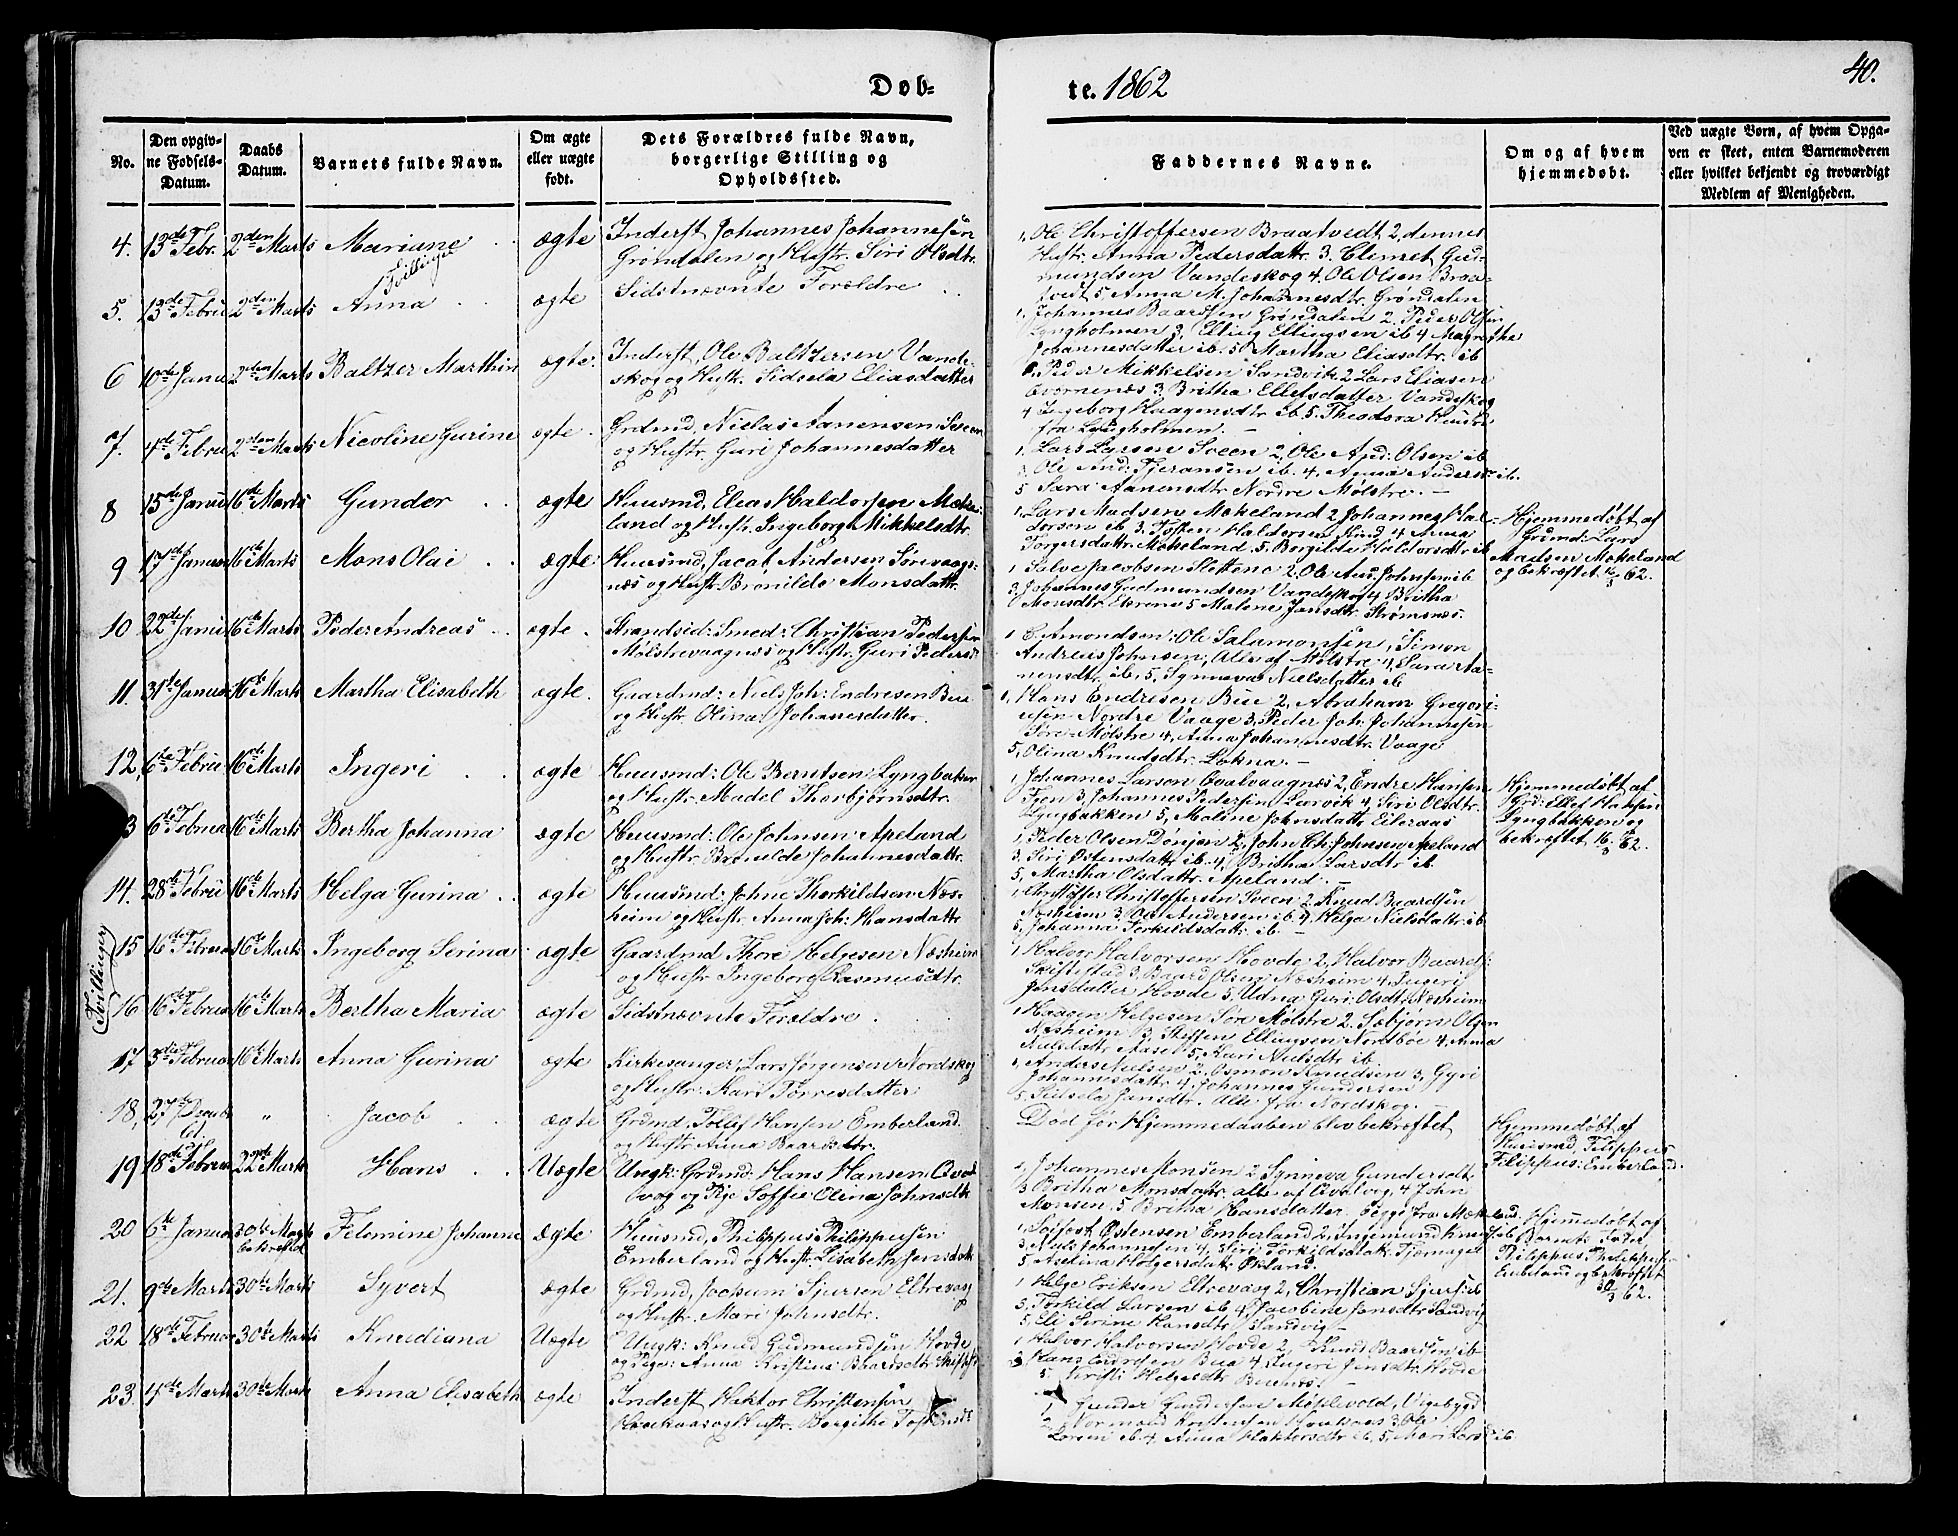 40.
Døb-
te. 1862
No.
Den opgiv-
ne Fødsels-
Datum.
Daabs
Datum.
Barnets fulde Navn.
Om ægte
eller uægte
født.
Dets Forældres fulde Navn,
borgerlige Stilling og
Opholdssted.
Faddernes Navne.
Om og af hvem
hjemmedøbt.
Ved uægte Børn, af hvem Opga-
ven er skeet, enten Barnemoderen
eller hvilket bekjendt og troværdigt
Medlem af Menigheden.
4. 13de Febr. 2den Marts Mariane ægte Inderst Johannes Johannesen
Grøndalen og Hustr. Siri Olsdtr.
1, Ole Christoffersen Braatvedt 2, dennes
Hustr. Anna Pedersdattr. 3. Clemet Gud-
mundsen Vandeskog 4. Ole Olsen Braa-
tvedt 5, Anna M. Johannesdtr. Grøndalen
Tvillinger
5. 13de Febru 2den Marts Anna ægte Sidstnævnte Forældre
1, Johannes Baardsen Grøndalen 2, Peder Olsen
Lyngholmen 3, Elling Ellingsen ib 4 Magrethe
Johannesdatter ib. 5 Martha Eliasdtr. ib
6 10de Janu 2den Marts Baltzer Marthin ægte. Inderst, Ole Baltzersen Vande-
skog og Hustr. Sidsela Eliasdatter
1. Peder Mikkelsen Sandvik 2 Lars Eliasen
3 Britha Ellefsdatter Vandeskog
4 Ingeborg Haagensdtr ib 5. Theodora
fra Lyngholmen. –
7. 4de Febru 2den Marts Nicoline Gurine ægte. Grdmd, Nielas Aanensen Sveen
og Hustr. Guri Johannesdatter
1, Lars Larsen Sveen 2, Ole And: Olsen ib
3. Ole And: Tjeransen ib. 4, Anna Anders ib.
5 Sara Aanensdtr Nordre Mølstre. –
8 15de Janu 16de Marts Gunder ægte Huusmd, Elias Haldorsen Møke-
land og Hustr. Ingeborg Mikkelsdtr.
1, Lars Madsen Møkeland 2 Johannes Hal-
dorsen ib 3. Tosten Haldorsen Hind 4 Anna
Torgersdattr. Møkeland, 5. Borgilde Haldorsdtr ib
Hjemmedøbt af
Grdmd: Lars
Madsen Møkeland
og bekræftet 16/3 62.
9 17de Januar 16de Marts Mons Olai ægte Huusmd, Jacob Andersen Sørevaags-
næs og Hustr Bronilde Monsdattr.
1 Salve Jacobsen Slettene 2. Ole And. Johnsen ib
3. Johannes Gudmundsen Vandeskog 4 Britha
Monsdtr. 5 Malene Jansdtr. Strømsnæs.
10 22de Janu 16de Marts Peder Andreas ægte. Strandsid: Smed: Christian Pedersen
Mølstrevaagnæs og Hustr. Guri Peders
1 E. Amondsen: Ole Salamonsen, Simon
Andreas Johnsen, Alle af Mølstre 4, Sara Aa-
nensdtr. ib. 5, Synneva Nielsdatter ib
11. 31te Januar 16de Marts Martha Elisabeth ægte. Gaardmd: Niels Joh: Endresen Bue
og Hustr. Olina Johannesdatter.
1, Hans Endresen Bue 2, Abraham Gregori-
usen Nordre Vaage 3, Peder Joh: Johannesen
Søre Mølstre 4, Anna Johannesdtr. Vaage
5, Olina Knudsdtr. Løkna. –
12, 6te Febru 16de Marts Ingeri ægte Huusmd: Ole Berntsen: Lyngbaken
og Hustr. Madel Thorbjørnsdtr.
1, Johannes Larson Qvalvaagnæs 2, Endre Hansen
Tjen 3, Johannes Pedersen Larvik 4, Siri Olsdtr.
Lyngbakken 5, Maline Johnsdattr. Eileraas
Hjemmedøbt af
Grd: Ellef Hansen
Lyngbakken og
bekræftet 16/3 62.
3 6te Februa 16de Marts Bertha Johanna ægte Huusmd: Ole Johnsen Apeland
og Hustr. Bronilde Johannesdattr.
1, Peder Olsen Dønjan 2, John Ch: Johnsen Apeland
3, Siri Østensdattr ib. 4, Britha Larsdtr ib.
5, Martha Olsdattr. Apeland. –
14. 28de Febru 16de Marts Helga Gurina ægte Huusmd: Johne Thorkildsen Næs-
heim og Hustr. Anna Joh: Hansdattr.
1, Christoffer Christoffersen Sveen 2, Knud Baardsen
Næsheim 3, Ole Andersen ib. 4, Helga Nielsdattr ib
5, Johanna Torkildsdattr. ib. –
Tvillinger
15 16de Februa 16de Marts Ingeborg Serina ægte Gaardmd Thore Helgesen Næsheim
og Hustr Ingeborg Rasmusdtr.
1, Halvor Halvorsen Hovde 2, Halvor Baards:
Skiftestad 3, Baard Olsen Næsheim 4, Ingeri
Jensdatter Hovde 5, Udna Guri: Olsdtr. Næsheim
16 16de Februa 16de Marts Bertha Maria ægte Sidstnævnte Forældre.
1, Haagen Helgesen Søre Mølstre 2. Sæbjørn Olsen
Næsheim 3, Steffen Ellingsen Nordbøe 4, Anna
Nielsdattr Aase 5, Kari Nielsdtr ib.
17, 3die Februar 16de Marts Anna Gurina ægte Kirkesanger, Lars Jørgensen Nordskog
og Hustr: Kari Torresdatter
1, Anders Nielsen 2, Osmon Knudsen 3, Gyri
Johannesdattr. 4, Johannes Gundersen
5, Sidsela Jansdtr. Alle fra Nordskog. –
18, 27de Decemb 61. " Jacob ægte Grdmd, Tollef Hansen Emberland
og Hustr Anna Baardsdtr.
Død før Hjemmedaaben blev bekræftet
Hjemmedøbt af
Huusmd, Filippus
Filippus: Emberland.
19 18de Februa 22de Marts Hans Uægte Ungk: Grdmd: Hans Hansen Qval-
vaag og Pige Soffie Olina Johnsdtr
1, Johannes Monsen 2 Synneva Gundersdtr
3 Britha Monsdattr. alle af Qvalvag. 4 John
Monsen, 5 Britha Hansdatter begge fra Møkeland.
20 6te Janua 30te Marts bekræftet Felomine Johanne Ægte Huusmd, Philippus Philippusen
Emberland og Hustr. Lisabeth Jensdtr
1, Sjofast Østensen Emberland 2, Ingemund Knuds: ib
3, Niels Johannsen 4, Siri Torkildsdattr. Tjernagel
5, Aselina Holgersdattr. Økland.
Hjemmedøbt af
Barnets Fader
Philippus Philippus-
Embeland og bekræftet
30/3 62.
21. 9de Marts 30te Marts Syvert ægte Grdmd, Jochum Sjursen Eltrevaag
og Hustr. Mari Johnsdtr.
1 Helge Eriksen Eltrevaag 2, Christian Sjurs: ib
3, Torkild Larsen ib 4 Jacobine Jansdtr Sandvig
5, Eli Serine Hansdtr. Sandvig –
22 18de Februar 30te Marts Knudiana Uægte Ungk: Knud Gudmundsen Hovde
og Pige: Anna Kristine Baardsdtr:
1 Halvor Halvorsen Hovde 2, Knud Baardsen ib
3 Hans Endresen Bua 4, Ingeri Jensdtr. Hovde
5. Kirsti Helgesdtr.
23. 4de Marts 30te Marts Anna Elisabeth ægte Inderst Haktor Christensen
og Hustr. Bergithe Tostensdt
1, Gunder Gundersen Vigebygd
2, 3. Ole
Larsen ib. 4, Anna Haktorsdtr ib, 5, Mari Lars ib.